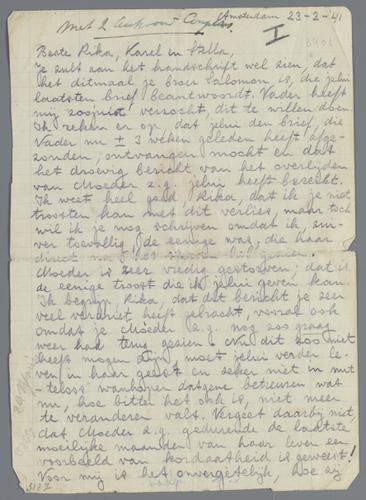 Met 2 Amsterdam 23-2-41
I
Beste Rika, Karel en Stella,
Je zult aan het handschrift wel zien, dat
het ditmaal je broer Salomon is, die jelui
laatsten brief beantwoordt. Vader heeft
mij zoojuist verzocht, dit te willen doen.
Ik reken er op, dat jelui den brief, die
Vader nu ± 3 weken geleden heeft afge-
zonden, ontvangen mocht en dat
het droevig bericht van het overlijden
van Moeder z.g. jelui heeft bereikt.
Ik weet heel goed Rika, dat ik je niet
troosten kan met dit verlies, maar toch
wil ik je nog schrijven omdat ik, zui-
ver toevallig, de eenige was, die haar
direct na het
Moeder is zeer vredig gestorven; dat is
de eenige troost die ik jelui geven kan.
Ik begrijp Rika, dat dit bericht je zeer
veel verdriet heeft gebracht, vooral ook
omdat je Moeder z.g. nog zoo graag
weer had terug gezien. Nu dit zoo niet
heeft mogen zijn, moet jelui verder le-
ven in haar geest en zeker niet in nut-
teloos wanhopen datgene betreuren wat
nu, hoe bitter het ook is, niet meer
te veranderen valt. Vergeet daarbij niet,
dat Moeder z.g. gedurende de laatste
moeilijke maanden van haar leven een
voorbeeld van kordaatheid is geweest!
Voor mij is het onvergetelijk, hoe zij